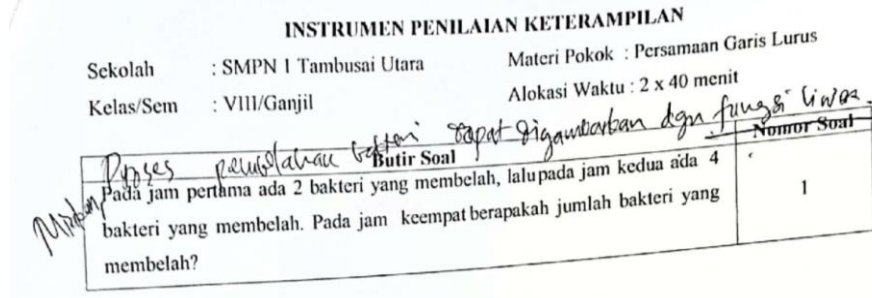 INSTRUMEN PENILAIAN KETERAMPILAN
Sekolah : SMPN 1 Tambusai Utara Materi Pokok : Persamaan Garis Lurus
Kelas/Sem : VIII/Ganjil Alokasi Waktu : 2 x 40 menit
Proses pembelahan bakteri dapat digambarkan dgn fungsi linear.
Butir Soal Nomor Soal
Pada jam pertama ada 2 bakteri yang membelah, lalu pada jam kedua ada 4
bakteri yang membelah. Pada jam keempat berapakah jumlah bakteri yang 1
membelah?